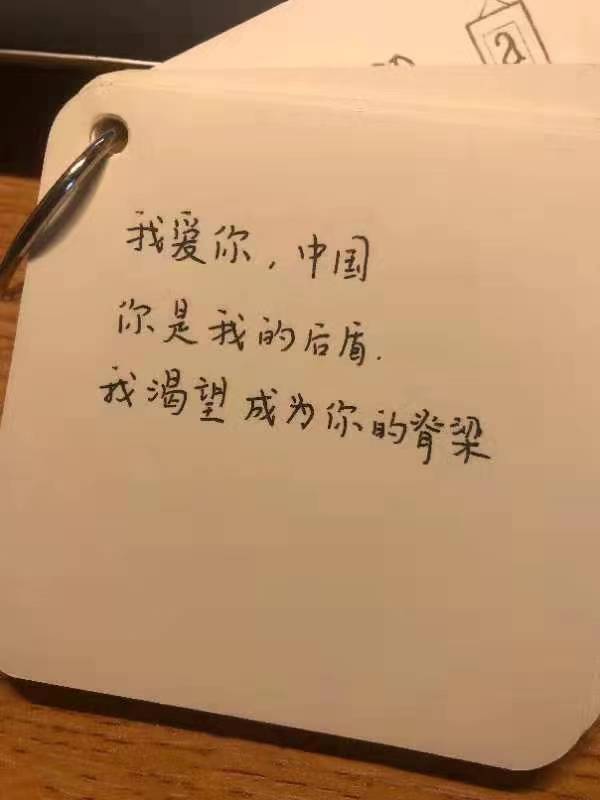 a
我爱你，中国
你是我的后盾.
我渴望成为你的脊梁